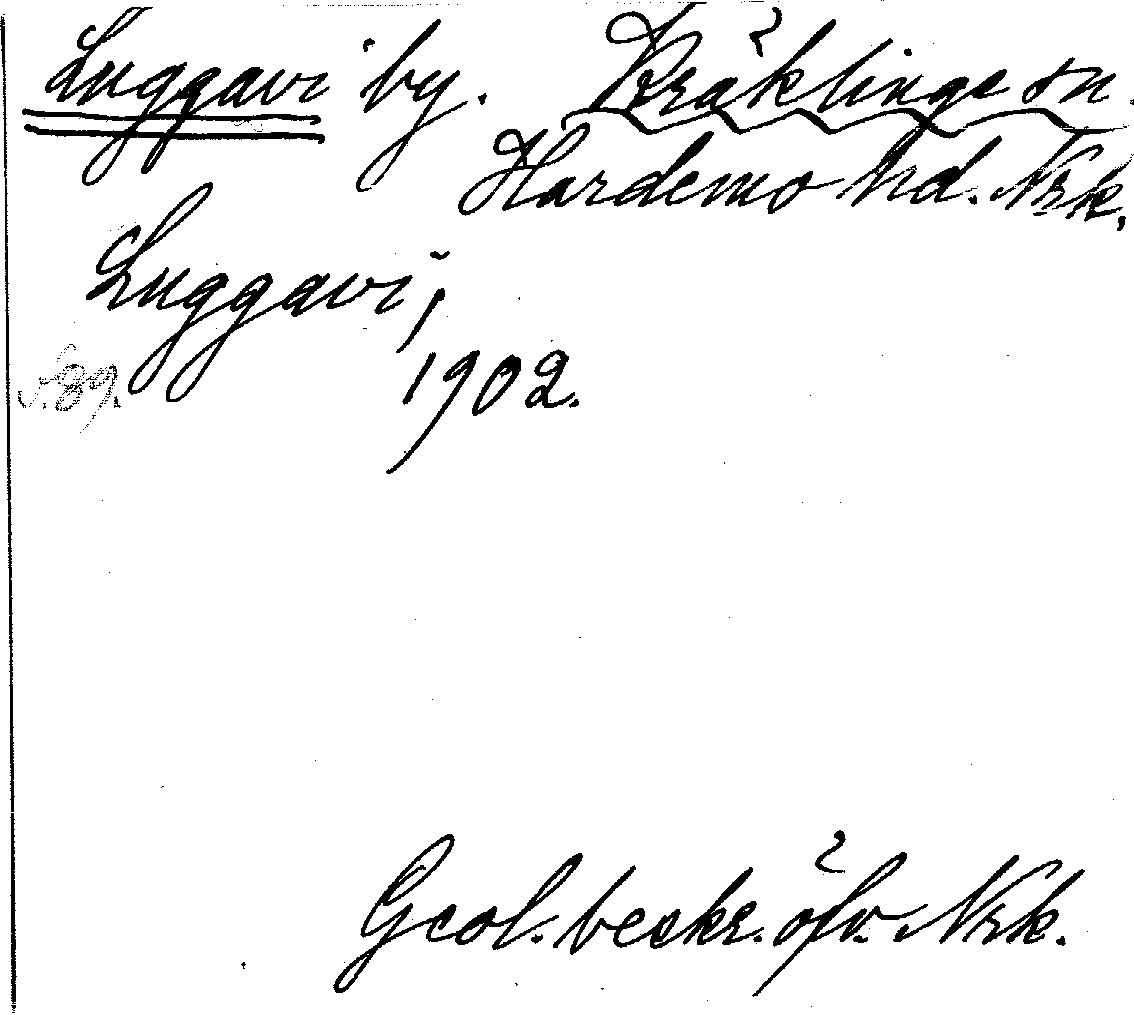 Luggavi by. Kräklinge sn.
Hardemo hd. Nrk.
Luggavi,
s. 89.
1902.
Geol. beskr. öfv. Nrk.